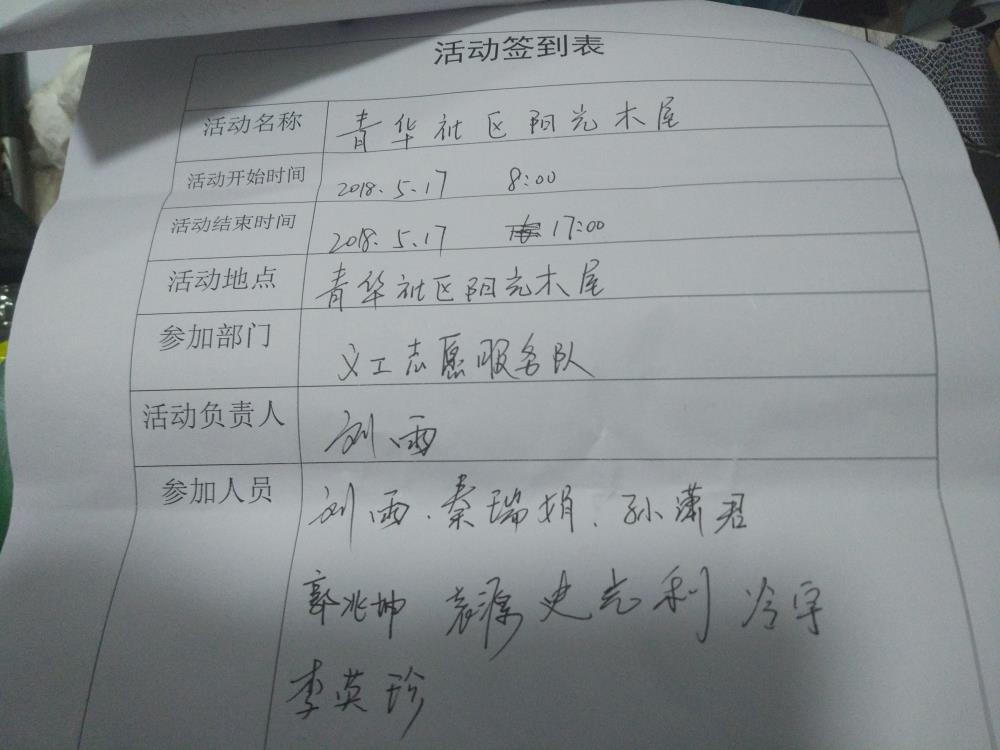 活动签到表
活动名称 青华社区阳光木屋
活动开始时间 2018.5.17 8:00
活动结束时间 2018.5.17 17:00
活动地点 青华社区阳光木屋
参加部门 义工志愿服务队
活动负责人 刘雨
参加人员 刘雨.秦瑞娟.孙潇君
郭兆坤 袁源 史志利 冷宇
李英珍